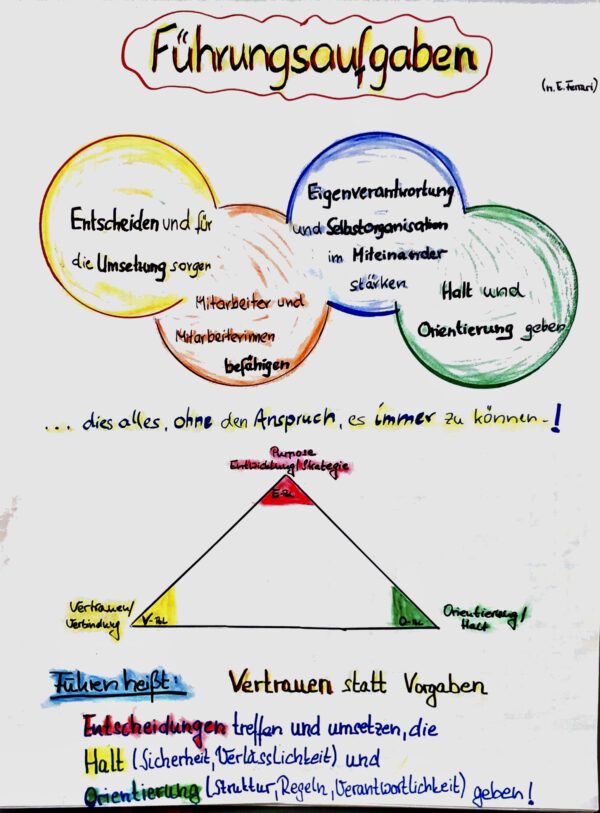 Führungsaufgaben
(n. E. Ferrari)
Entscheiden und für
die Umsetzung sorgen
Mitarbeiter und
Mitarbeiterinnen
befähigen
Eigenverantwortung
und Selbstorganisation
im Miteinander
stärken
Halt und
Orientierung geben
... dies alles, ohne den Anspruch, es immer zu können - !
Purpose
Entwicklung/Strategie
Vertrauen/
Verbindung
Orientierung/
Halt
Führen heißt: Vertrauen statt Vorgaben
Entscheidungen treffen und umsetzen, die
Halt (Sicherheit, Verlässlichkeit) und
Orientierung (Struktur, Regeln, Verantwortlichkeit) geben!